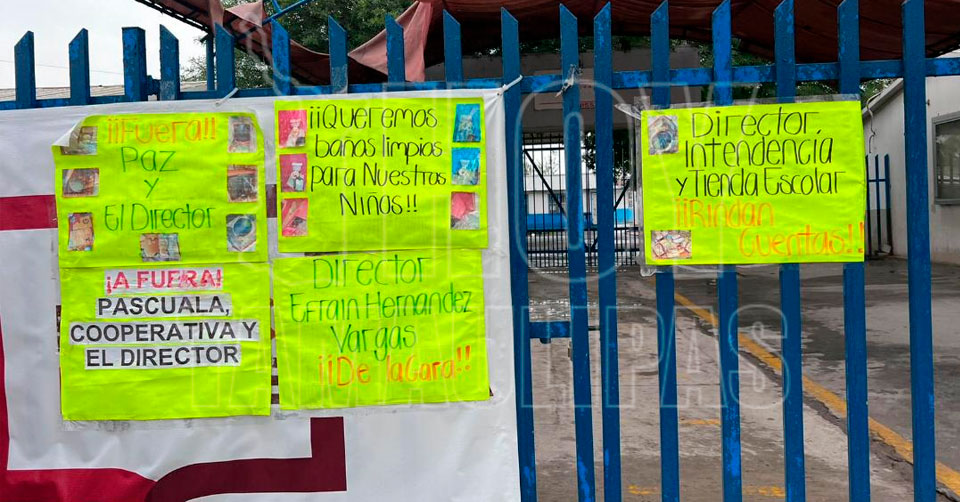 ¡¡Fuera!!
Paz
y
El Director
¡A FUERA!
PASCUALA,
COOPERATIVA Y
EL DIRECTOR
¡¡Queremos
baños limpios
para Nuestras
Niñas!!
Director
Efrain Hernandez
Vargas
¡¡De la Cara!!
Director,
Intendencia
y Tienda Escolar
¡¡Rindan
Cuentas!!
HOY
TAMAULIPAS